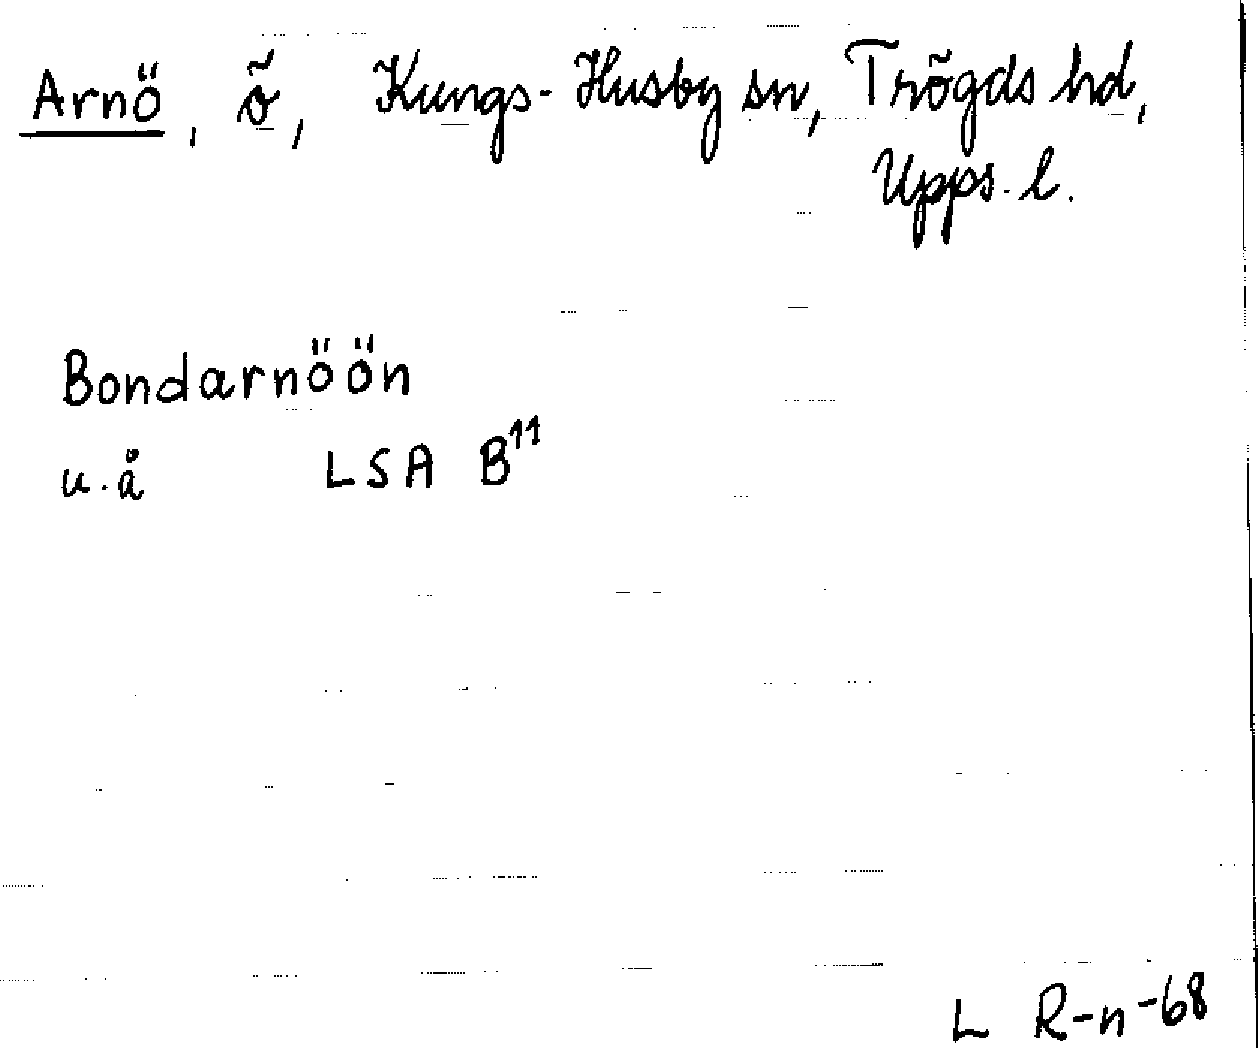 Arnö, ö, Kungs-Husby sn, Trögds hd,
Upps. l.
Bondarnöön
u.å LSA B¹¹
L R-n-68